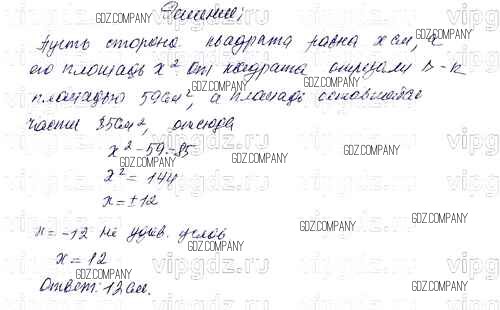 Решение:
Пусть сторона квадрата равна x см, а
его площадь x². От квадрата отрезали П-к
площадью 59 см², а площадь оставшейся
части 85 см², отсюда
x² - 59 = 85
x² = 144
x = ±12
x = -12 не удов. услов
x = 12
Ответ: 12 см.
GDZ.COMPANY
vipgdz.ru